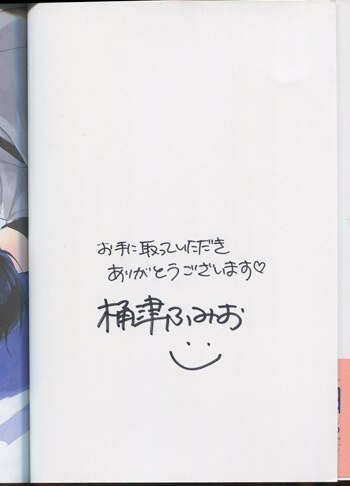 お手に取っていただき
ありがとうございます♡
桶津ふみお